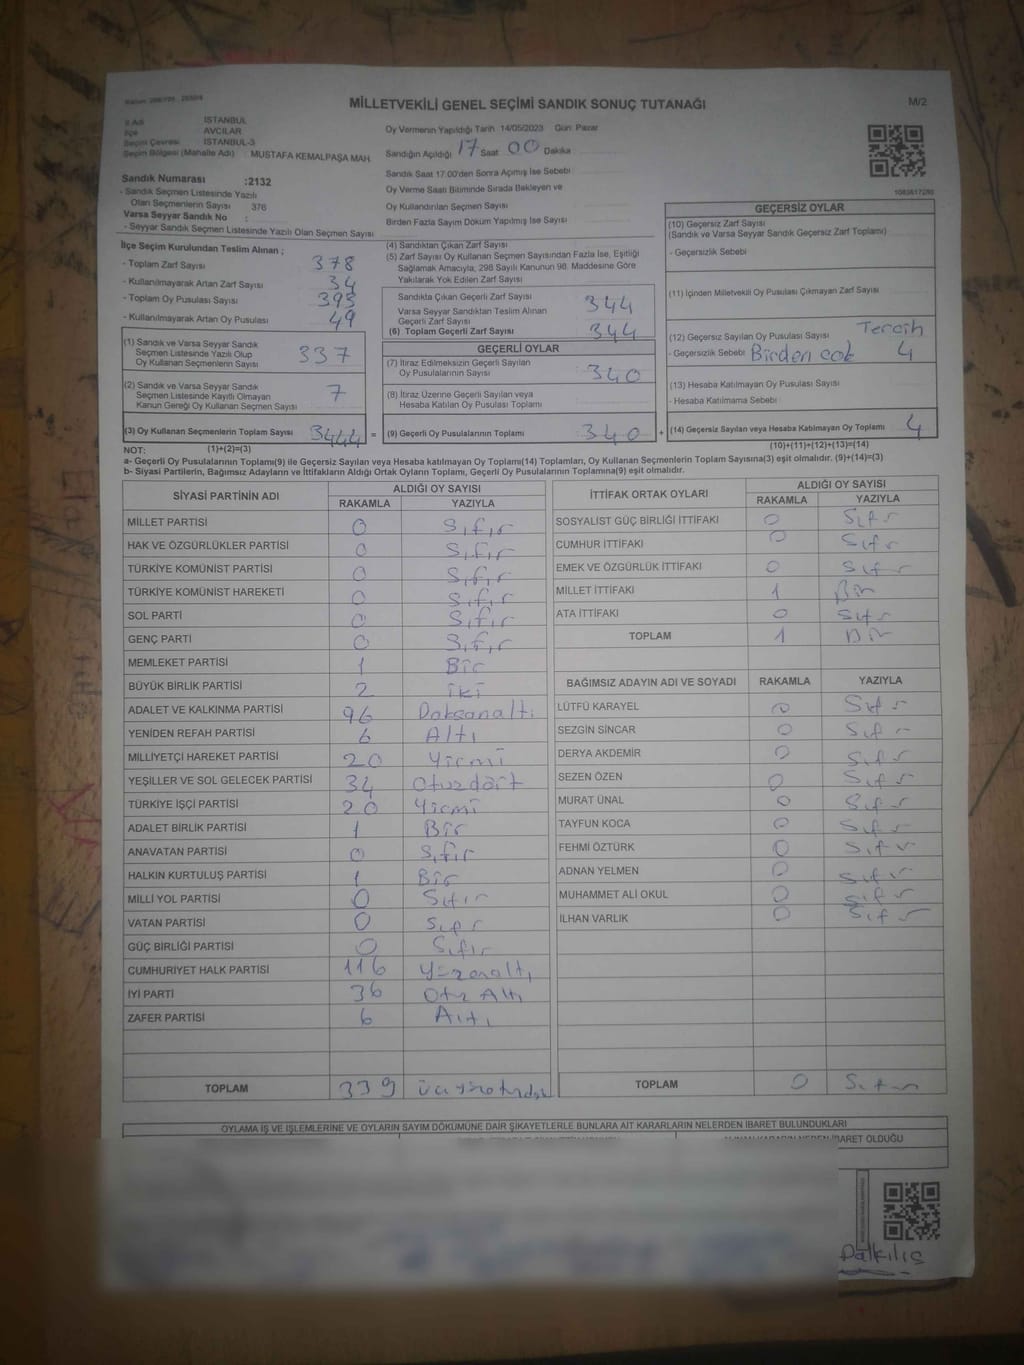 MİLLETVEKİLİ GENEL SEÇİMİ SANDIK SONUÇ TUTANAĞI
M/2
İl Adı İSTANBUL
İlçe AVCILAR
Seçim Çevresi İSTANBUL-3
Seçim Bölgesi (Mahalle Adı) : MUSTAFA KEMALPAŞA MAH.
Oy Vermenin Yapıldığı Tarih 14/05/2023 Gün: Pazar
Sandığın Açıldığı 17 Saat 00 Dakika
Sandık Saat 17.00'den Sonra Açımış İse Sebebi
Oy Verme Saati Bitiminde Sırada Bekleyen ve
Oy Kullandırılan Seçmen Sayısı
Birden Fazla Sayım Döküm Yapılmış İse Sayısı
Sandık Numarası :2132
- Sandık Seçmen Listesinde Yazılı
Olan Seçmenlerin Sayısı 376
Varsa Seyyar Sandık No :
- Seyyar Sandık Seçmen Listesinde Yazılı Olan Seçmen Sayısı
İlçe Seçim Kurulundan Teslim Alınan ;
- Toplam Zarf Sayısı 378
- Kullanılmayarak Artan Zarf Sayısı 34
- Toplam Oy Pusulası Sayısı 393
- Kullanılmayarak Artan Oy Pusulası 49
(1) Sandık ve Varsa Seyyar Sandık
Seçmen Listesinde Yazılı Olup
Oy Kullanan Seçmenlerin Sayısı 337
(2) Sandık ve Varsa Seyyar Sandık
Seçmen Listesinde Kayıtlı Olmayan
Kanun Gereği Oy Kullanan Seçmen Sayısı 7
(3) Oy Kullanan Seçmenlerin Toplam Sayısı 3444 =
(1)+(2)=(3)
(4) Sandıktan Çıkan Zarf Sayısı
(5) Zarf Sayısı Oy Kullanan Seçmen Sayısından Fazla İse, Eşitliği
Sağlamak Amacıyla, 298 Sayılı Kanunun 98. Maddesine Göre
Yakılarak Yok Edilen Zarf Sayısı
Sandıkta Çıkan Geçerli Zarf Sayısı 344
Varsa Seyyar Sandıktan Teslim Alınan
Geçerli Zarf Sayısı
(6) Toplam Geçerli Zarf Sayısı 344
GEÇERLİ OYLAR
(7) İtiraz Edilmeksizin Geçerli Sayılan
Oy Pusulalarının Sayısı 340
(8) İtiraz Üzerine Geçerli Sayılan veya
Hesaba Katılan Oy Pusulası Toplamı
(9) Geçerli Oy Pusulalarının Toplamı 340 +
GEÇERSİZ OYLAR
(10) Geçersiz Zarf Sayısı
(Sandık ve Varsa Seyyar Sandık Geçersiz Zarf Toplamı)
- Geçersizlik Sebebi
(11) İçinden Milletvekili Oy Pusulası Çıkmayan Zarf Sayısı
(12) Geçersiz Sayılan Oy Pusulası Sayısı Tercih
- Geçersizlik Sebebi Birden çok 4
(13) Hesaba Katılmayan Oy Pusulası Sayısı
- Hesaba Katılmama Sebebi
(14) Geçersiz Sayılan veya Hesaba Katılmayan Oy Toplamı 4
(10)+(11)+(12)+(13)=(14)
NOT:
a- Geçerli Oy Pusulalarının Toplamı(9) ile Geçersiz Sayılan veya Hesaba katılmayan Oy Toplamı(14) Toplamları, Oy Kullanan Seçmenlerin Toplam Sayısına(3) eşit olmalıdır. (9)+(14)=(3)
b- Siyasi Partilerin, Bağımsız Adayların ve İttifakların Aldığı Ortak Oyların Toplamı, Geçerli Oy Pusulalarının Toplamına(9) eşit olmalıdır.
SİYASİ PARTİNİN ADI
ALDIĞI OY SAYISI
RAKAMLA YAZIYLA
MİLLET PARTİSİ 0 Sıfır
HAK VE ÖZGÜRLÜKLER PARTİSİ 0 Sıfır
TÜRKİYE KOMÜNİST PARTİSİ 0 Sıfır
TÜRKİYE KOMÜNİST HAREKETİ 0 Sıfır
SOL PARTİ 0 Sıfır
GENÇ PARTİ 0 Sıfır
MEMLEKET PARTİSİ 1 Bir
BÜYÜK BİRLİK PARTİSİ 2 iki
ADALET VE KALKINMA PARTİSİ 96 Doksanaltı
YENİDEN REFAH PARTİSİ 6 Altı
MİLLİYETÇİ HAREKET PARTİSİ 20 Yirmi
YEŞİLLER VE SOL GELECEK PARTİSİ 34 Otuzdört
TÜRKİYE İŞÇİ PARTİSİ 20 Yirmi
ADALET BİRLİK PARTİSİ 1 Bir
ANAVATAN PARTİSİ 0 Sıfır
HALKIN KURTULUŞ PARTİSİ 1 Bir
MİLLİ YOL PARTİSİ 0 Sıfır
VATAN PARTİSİ 0 Sıfır
GÜÇ BİRLİĞİ PARTİSİ 0 Sıfır
CUMHURİYET HALK PARTİSİ 116 Yüzonaltı
İYİ PARTİ 36 Otuz Altı
ZAFER PARTİSİ 6 Altı
TOPLAM 339
İTTİFAK ORTAK OYLARI
ALDIĞI OY SAYISI
RAKAMLA YAZIYLA
SOSYALİST GÜÇ BİRLİĞİ İTTİFAKI 0 Sıfır
CUMHUR İTTİFAKI 0 Sıfır
EMEK VE ÖZGÜRLÜK İTTİFAKI 0 Sıfır
MİLLET İTTİFAKI 1 Bir
ATA İTTİFAKI 0 Sıfır
TOPLAM 1 Bir
BAĞIMSIZ ADAYIN ADI VE SOYADI RAKAMLA YAZIYLA
LÜTFÜ KARAYEL 0 Sıfır
SEZGİN SİNCAR 0 Sıfır
DERYA AKDEMİR 0 Sıfır
SEZEN ÖZEN 0 Sıfır
MURAT ÜNAL 0 Sıfır
TAYFUN KOCA 0 Sıfır
FEHMİ ÖZTÜRK 0 Sıfır
ADNAN YELMEN 0 Sıfır
MUHAMMET ALİ OKUL 0 Sıfır
İLHAN VARLIK 0 Sıfır
TOPLAM 0 Sıfır
OYLAMA İŞ VE İŞLEMLERİNE VE OYLARIN SAYIM DÖKÜMÜNE DAİR ŞİKAYETLERLE BUNLARA AİT KARARLARIN NELERDEN İBARET BULUNDUKLARI
OLDUĞU